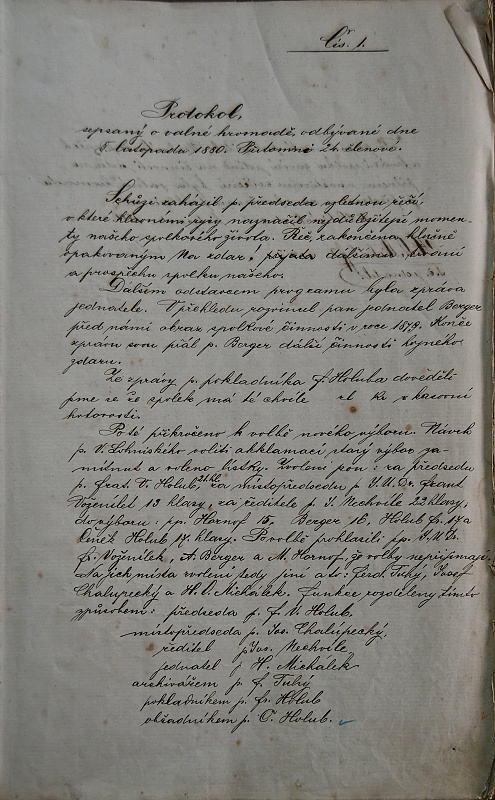 Čís. 1.
Protokol,
sepsaný o valné hromadě, odbývané dne
5. listopadu 1880. Přítomno 24 členové.
Schůzi zahájil p. předseda úhlednou řečí,
v které hlavními rysy naznačil nejdůležitější momen-
ty našeho spolkového života. Řeč, zakončena hlučně
opakovaným Na zdar, dalšímu trvání
a prospěchu spolku našeho.
Dalším odstavcem programu byla zpráva
jednatele. V přehledu rozvinul pan jednatel Berger
před námi obraz spolkové činnosti v roce 1879. Konče
zprávu svou přál p. Berger další činnosti hojného
zdaru.
Ze zprávy p. pokladníka f. Holuba dověděli
jsme se že spolek má té chvíle zl. kr. v hasovní
hotovosti.
Poté přikročeno k volbě nového výboru. Návrh
p. V. voliti akklamací starý výbor za-
mítnut a voleno lístky. Zvoleni jsou: za předsedu
p. frat. V. Holub, 21 hl. za místopředsedu p. J. U. Dr. frant
Voženílek 13 hlasy, za ředitele p. J. Nechvíle 22 hlasy,
do výboru: pp. Hornof 15, Berger 16, Holub fr. 17 a
Čeněk Holub 17. hlasy. Po volbě prohlásili pp. J. U. Dr.
fr. Voženílek, A. Berger a M. Hornof, že volby nepřijímají.
Na jich místa zvoleni tedy jiní a to: ferd. Tuhý, Josef
Chalupecký a H. Michálek. funkce rozděleny tímto
způsobem: předseda p. f. V. Holub.
místopředseda p. Jos. Chalupecký.
ředitel p. Jos. Nechvíle
jednatel p. H. Michálek
archivářem p. f. Tuhý
pokladníkem p. fr. Holub
obřadníkem p. Č. Holub.